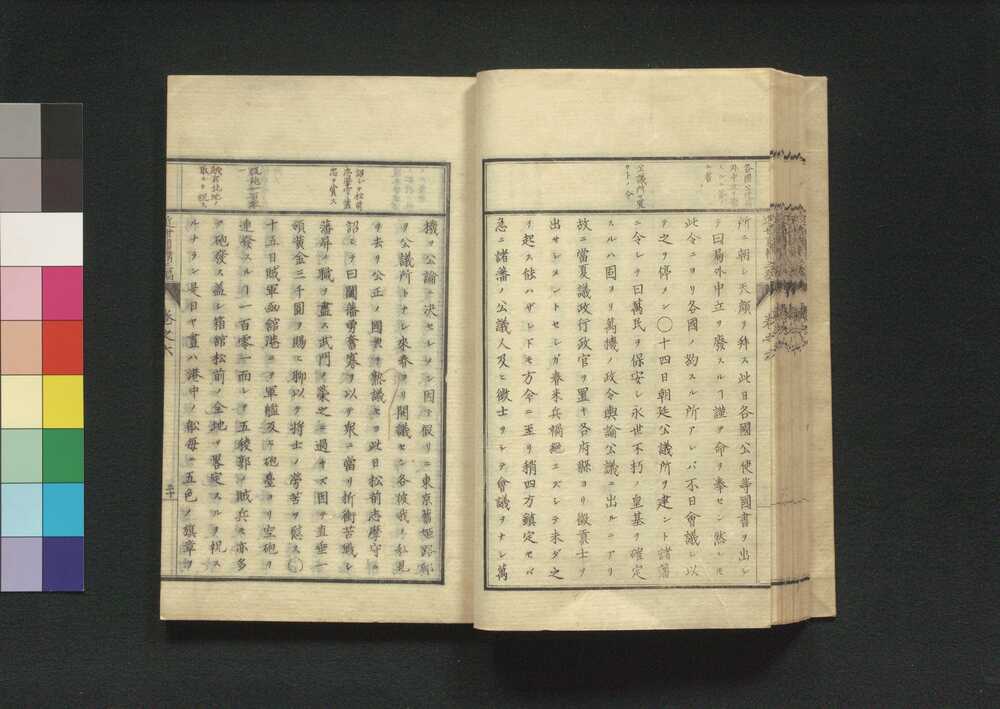 所ニ朝シ天顔ヲ拜ス此日各國公使等國書ヲ出シ
テ曰局外中立ヲ廢スルヿ謹テ命ヲ奉セン然レモ
此令ニヨリ各國ノ約スル所アレバ不日會議シ以
テ之ヲ停メン〇十四日朝廷公議所ヲ建ント諸藩
ニ令シテ曰萬民ヲ保安シ永世不朽ノ皇基ヲ確定
スルハ固ヨリ萬機ノ政令輿論公議ニ出ルニアリ
故ニ當夏議政行政官ヲ置キ各府縣ヨリ徴貢士ヲ
出サシメントセシガ春来兵禍絶エズシテ未ダ之
ヲ起ス能ハザレドモ方今ニ至リ稍四方鎮定セバ
急ニ諸藩ノ公議人及ヒ徴士ヲシテ會議ヲナシ萬
機ヲ公論ニ決セシメン因テ假リニ東京舊姫路邸
ヲ公議所トナシ來春ヨリ開議セン各彼我ノ私見
ヲ去リ公正ノ國典ヲ熟議セヨ此日松前志摩守ニ
詔シテ曰闔藩勇奮寡ヲ以テ衆ニ當リ折衝苦戰シ
藩屏ノ職ヲ盡ス武門ノ榮之ニ過キズ因テ直垂一
領黄金三千圓ヲ賜ヒ聊以テ将士ノ勞苦ヲ慰ス〇
十五日賊軍函館港ニテ軍艦及ヒ砲臺ヨリ空砲ヲ
連發スルヿ一百零一而シテ五稜郭ノ賊兵モ亦多
ク砲發ス蓋シ箱館松前ノ全地ヲ畧定スルヲ祝ス
ルナラン是日ヤ晝ハ港中ノ船毎ニ五色ノ旗章ヲ
巻之六